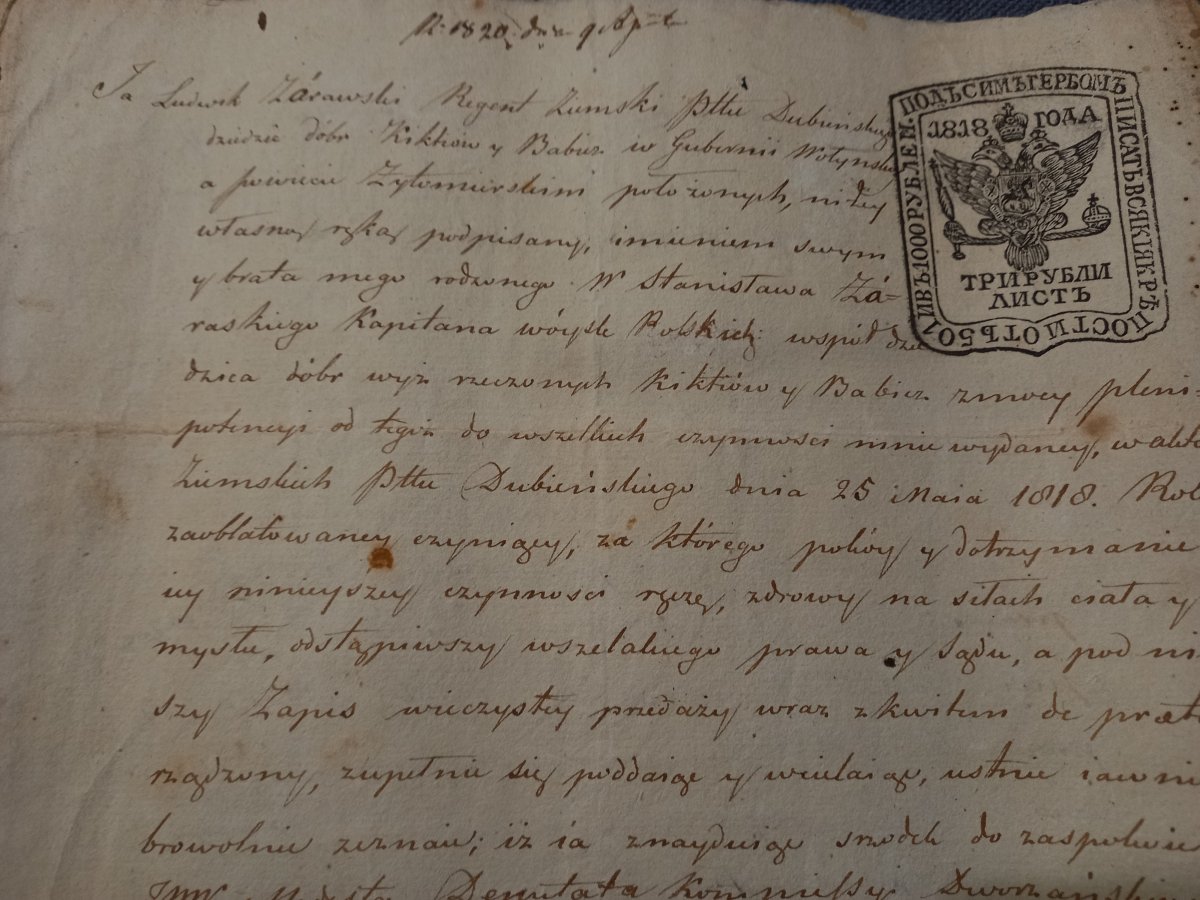 R. 1820. dnia 9 Apr
Ja Ludwik Zárawski Regent Ziemski Pttu Dubieńskiego
dziedzic dóbr Kiktiow y Babicz w Gubernii Wołyńskiey
a powiecie Zytomierskim położonych, niżey
własną ręką podpisany, imieniem swym
y brata mego rodzonego W Stanisława Zá-
raskiego Kapitana wóysk Polskich współ dzie
dzica dóbr wyż rzeczonych Kiktiów y Babicz z mocy pleni-
potencyi od tegoż do wszelkich czynnosci mnie wydaney, w akta
Ziemskich Pttu Dubieńskiego dnia 25 Maia 1818. Rok
zaoblatowaney czyniący, za którego pokóy y dotrzymanie
iey ninieyszey czynnosci ręczę, zdrowy na siłach ciała y
mysłu, odstąpiwszy wszelakiego prawa y Sądu, a pod ni
szy Zapis wieczystey przedaży wraz z kwitem de præte
rządzony, zupełnie się poddaiąc y wcielaiąc, ustnie iawni
browolnie zeznaie; iż ia znayduiąc srzodek do zaspokoie
JWW Deputata Kommissyi Dworzańskiey
ПОДЪ СИМЪ ГЕРБОМЪ ПИСАТЬ ВСЯКІЯ КРѢПОСТИ ОТЪ 50 ДИВЪ 1000 РУБЛЕЙ.
1818 ГОДА
ТРИ РУБЛИ
ЛИСТЪ